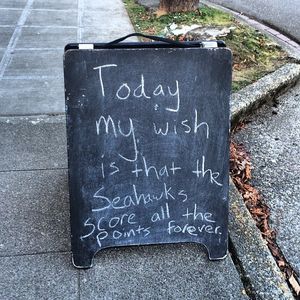 Today
my wish
is that the
Seahawks
score all the
points forever.